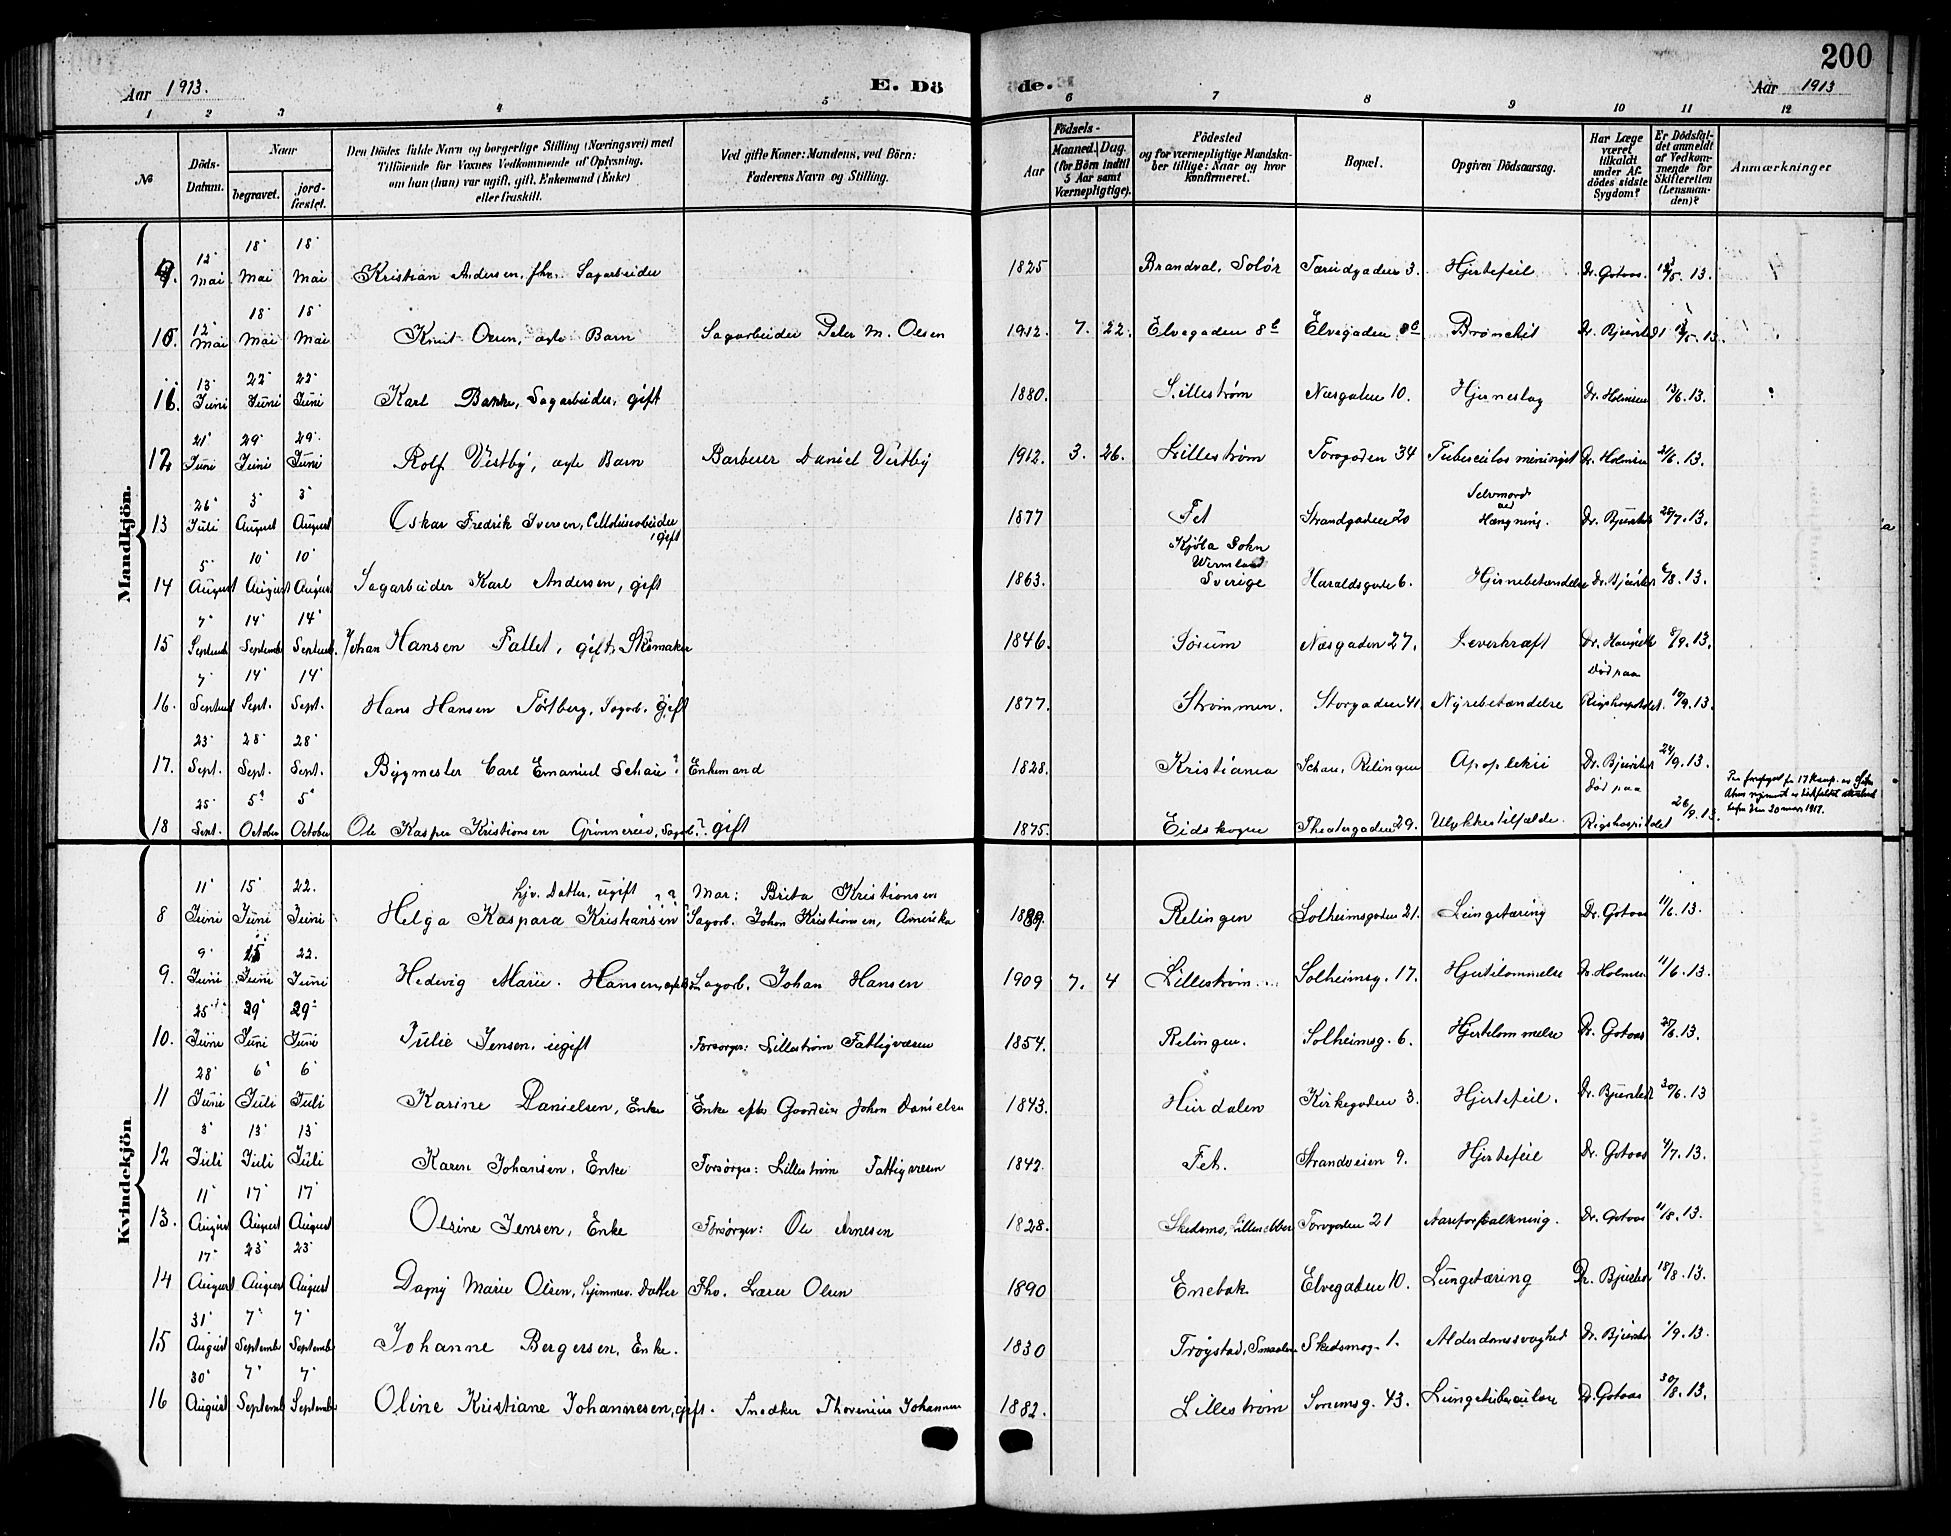 200
Aar 1913.
E. Dö
de.
Aar 1913
1 2 3 4 5 6 7 8 9 10 11 12
№
Döds-Datum.
Naar
begravet.
jord-fæstet.
Den Dödes fulde Navn og borgerlige Stilling (Næringsvei) med
Tilföiende for Voxnes Vedkommende af Oplysning.
om han (hun) var ugift, gift, Enkemand (Enke)
eller fraskilt.
Ved gifte Koner: Mandens, ved Börn:
Faderens Navn og Stilling.
Födsels-
Aar
Maaned. Dag
(for Börn indtil
5 Aar samt
Værnepligtige).
Födested
og for værnepligtige Mandska-
ber tillige: Naar og hvor
konfirmeret.
Bopæl.
Opgiven Dödsaarsag.
Har Læge
været
tilkaldt
under Af-
dödes sidste
Sygdom?
Er Dödsfal-
det anmeldt
af Vedkom-
mende for
Skifteretten
(Lensman-
den)?
Anmærkninger
Mandkjön.
9. 12 Mai 18 Mai 18 Mai Kristian Andersen, fhv. Sagarbeider 1825 Brandval, Solör Tærudgaden 3. Hjertefeil Dr. Gotaas. 13/5. 13.
10. 12 Mai 18 Mai 18 Mai Knut Olsen, ægte Barn Sagarbeider Peter M. Olsen 1912. 7. 22. Elvegaden 8b Elvegaden 8b Bronchit Dr. Bjursted 13/5. 13.
11. 13 Juni 22 Juni 22 Juni Karl Bakke, Sagarbeider, gift 1880. Lilleström Næsgaten 10. Hjerneslag Dr. Holmsen 13/6. 13.
12 21 Juni 29 Juni 29 Juni Rolf Vestby, ægte Barn Barberer Daniel Vestby 1912. 3. 26. Lilleström Torvgaden 34 Tuberculos meningit Dr. Holmsen 21/6. 13.
13 26 Juli 3 August 3 August Oskar Fredrik Iversen, Cellulosearbeider, gift 1877 Fet Strandgaden 20 Selvmord ved Hængning. Dr. Bjursted 28/7. 13.
14 5 August 10 August 10 August Sagarbeider Karl Andersen, gift 1863. Kjöla Sokn Wermland Sverige Haraldsgade 6. Hjernebetændelse Dr. Bjursted 6/8. 13.
15 7 Septemb 14 Septemb 14 Septemb. Johan Hansen Fallet, gift, Skomaker 1846. Sörum Næsgaden 27. Leverkræft Dr. 8/9. 13.
16. 7 Septemb 14 Sept. 14 Sept. Hans Hansen Törtberg, Sagarb. gift 1877. Strömmen. Storgaden 41. Nyrebetændelse Död paa Rigshospitalet. 10/9. 13.
17. 23 Sept. 28 Sept. 28 Sept. Bygmester Carl Emanuel Schau ?. Enkemand 1828. Kristiania Schau, Rælingen Apoplexi Dr. Bjursted 24/9. 13.
18 25 Sept. 5 October 5 October Ole Kasper Kristiansen Grönnerud, Sagarb. ?. gift 1875. Eidskogen Theatergaden 29. Ulykkestilfælde. Död paa Rigshospitalet 26/9. 13.
Kvindekjön
8 11 Juni 15 Juni 22. Juni hjv. Datter, ugift Helga Kaspara Kristiansen Mor: Brita Kristiansen Sagarb. Johan Kristiansen, Amerika 1889. Rælingen Solheimsgaden 21. Lungetæring Dr. Gotaas 11/6. 13.
9. 9 Juni 15 Juni 22. Juni Hedvig Marie Hansen, Sagarb. Johan Hansen 1909 7. 4 Lilleström Solheimsg. 17. Hjertelammelse Dr. Holmsen 11/6. 13.
10. 25 Juni 29 Juni 29 Juni Julie Jensen, ugift Forsörges: Lilleström Fattigvæsen 1854. Rælingen. Solheimsg. 6. Hjertelammelse Dr. Gotaas 25/6. 13.
11 28 Juni 6 Juli 6 Juli Karine Danielsen, Enke Enke efter Gaardeier Johan Danielsen 1843. Hurdalen Kirkegaden 3. Hjertefeil. Dr. Bjursted 30/6. 13
12 3 Juli 13 Juli 13 Juli Karen Johansen, Enke Forsörges: Lilleström Fattigvæsen 1842. Fet. Strandveien 9. Hjertefeil Dr. Gotaas 4/7. 13.
13. 11 August 17 August 17 August Olsine Jensen, Enke Forsörger: Ole Arnesen 1828. Skedsmo, Torvgaden 21 Aareforkalkning. Dr. Gotaas 11/8. 13.
14 17 August 23 August 23 August Dagny Marie Olsen, hjemmev. Datter Fhv. Lærer Olsen 1890 Enebak Elvegaden 10. Lungetæring Dr. Bjursted 18/8. 13.
15 31 August 7 Septemb 7 Septemb Johanne Bergersen, Enke. 1830 Tröystad, Smaalen. Skedsmog. 1. Alderdomssvaghed Dr. Bjursted 1/9. 13.
16 30 August 7 Septemb 7 Septembe Oline Kristiane Johannesen, gift. Snedker Thorenius Johannesen 1882. Lilleström Sörumsg. 43. Lungetuberculose Dr. Gotaas 30/8. 13.